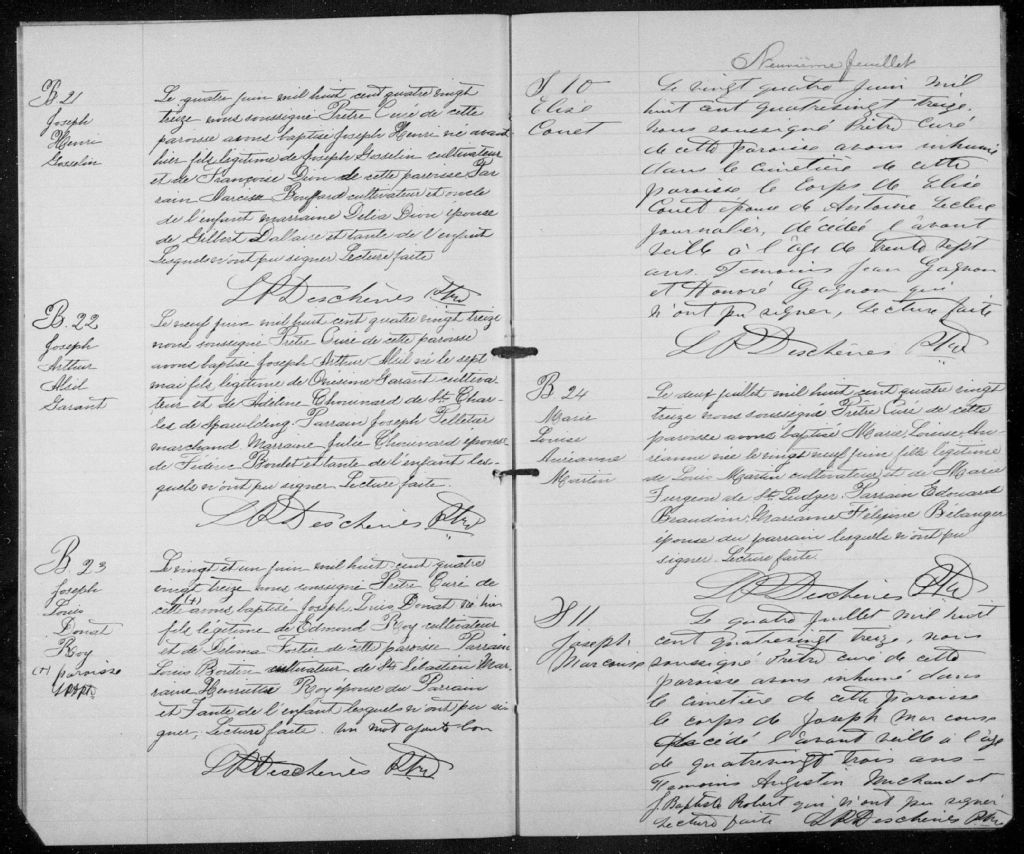 B 21
Joseph
Henri
Gosselin
Le quatre juin mil huit cent quatre vingt
treize nous soussigné Prêtre Curé de cette
paroisse avons baptisé Joseph Henri né avant
hier fils légitime de Joseph Gosselin cultivateur
et de Françoise Dion de cette paroisse Par
rain Narcisse Bouffard cultivateur et oncle
de l'enfant marraine Délia Dion épouse
de Gilbert Dallaire et tante de l'enfant
Lesquels n'ont pu signer Lecture faite
L P Deschênes Ptre
B. 22
Joseph
Arthur
Alid
Garant
Le neuf juin mil huit cent quatre vingt treize
nous soussigné Prêtre Curé de cette paroisse
avons baptisé Joseph Arthur Alid né le sept
mai fils légitime de Onésime Garant cultiva
teur et de Adeline Chouinard de St. Char-
les de Spaulding. Parrain Joseph Pelletier
marchand Marraine Julie Chouinard épouse
de Fédéric Boulet et tante de l'enfant les-
quels n'ont pu signer Lecture faite.
L P Deschênes Ptre
B 23
Joseph
Louis
Donat
Roy
(+) paroisse
Le vingt et un juin mil huit cent quatre
vingt treize nous soussigné Prêtre Curé de
cette (+) avons baptisé Joseph Louis Donat né hier
fils légitime de Edmond Roy cultivateur
et de Delima Fortier de cette paroisse Parrain
Louis cultivateur de St Sébastien Mar
raine Henriette Roy épouse du Parrain
et Tante de l'enfant lesquels n'ont pu si
gner, Lecture faite. Un mot ajouté bon
L P Deschênes Ptre
Neuvième feuillet
S 10
Elise
Couet
Le vingt quatre juin mil
huit cent quatrevingt treize,
nous soussigné Prêtre Curé
de cette paroisse avons inhumé
dans le cimetière de cette
paroisse le corps de Elise
Couet épouse de Antoine Leclerc
journalier, décédée l'avant
veille à l'âge de trente sept
ans. Temoins Jean Gagnon
et Honoré Gagnon qui
n'ont pu signer, Lecture faite
L P Deschênes Ptre
B 24
Marie
Louise
Aurianne
Martin
Le deux juillet mil huit cent quatre vingt
treize nous soussigné Prêtre Curé de cette
paroisse avons baptisé Marie, Louise, Au
rianne née le vingt neuf juin fille légitime
de Louis Martin cultivateur et de Marie
Turgeon de St. Ludger. Parrain Edouard
Beaudoin, Marraine Bélanger
épouse du parrain lesquels n'ont pu
signer. Lecture faite.
L P Deschênes Ptre
S 11
Joseph
Marcouse
Le quatre juillet mil huit
cent quatrevingt treize, nous
soussigné Prêtre curé de cette
paroisse avons inhumé dans
le cimetière de cette paroisse
le corps de Joseph Marcouse
décédé l'avant veille à l'âge
de quatrevingt trois ans-
Temoins Augustin Michaud et
J Baptiste Robert qui n'ont pu signer
Lecture faite L P Deschênes Ptre